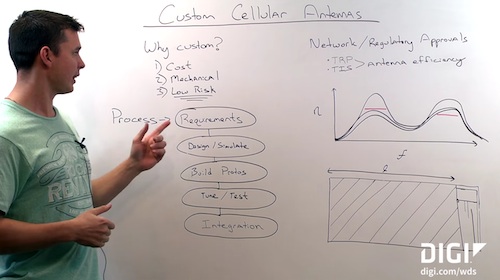 Custom Cellular Antenas
Why custom?
1) Cost
2) Mechanical
3) Low Risk
Process →
Requirements
Design/Simulate
Build Protos
Tune/Test
Integration
Network/Regulatory Approvals
• TRP
• TIS
> Antenna efficiency
η
f
l
DIGI
digi.com/wds